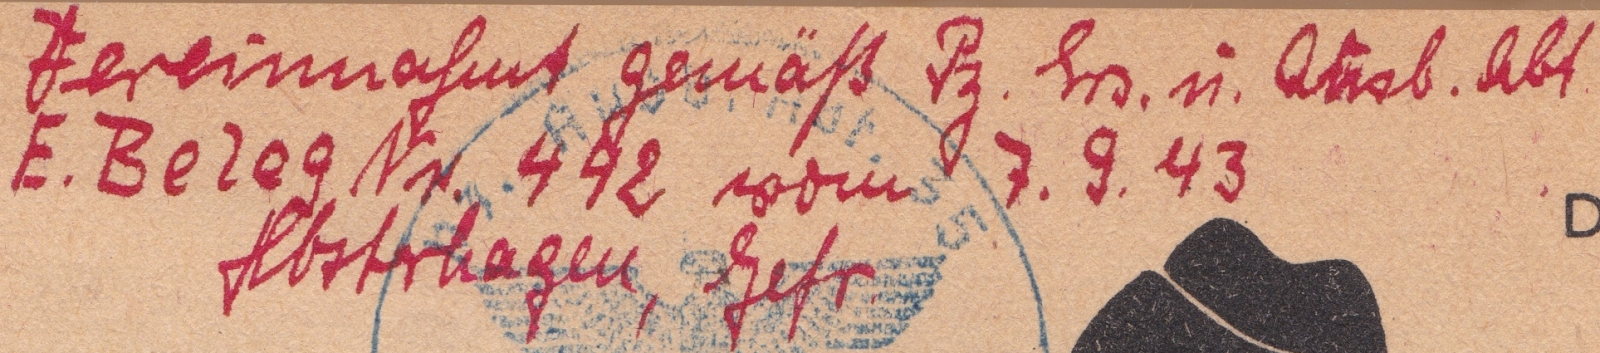 Vereinnahmt gemäß Pz. Ers. u. Ausb. Abt.
E. Beleg Nr. 442 vom 7.9.43
Gefr.
D